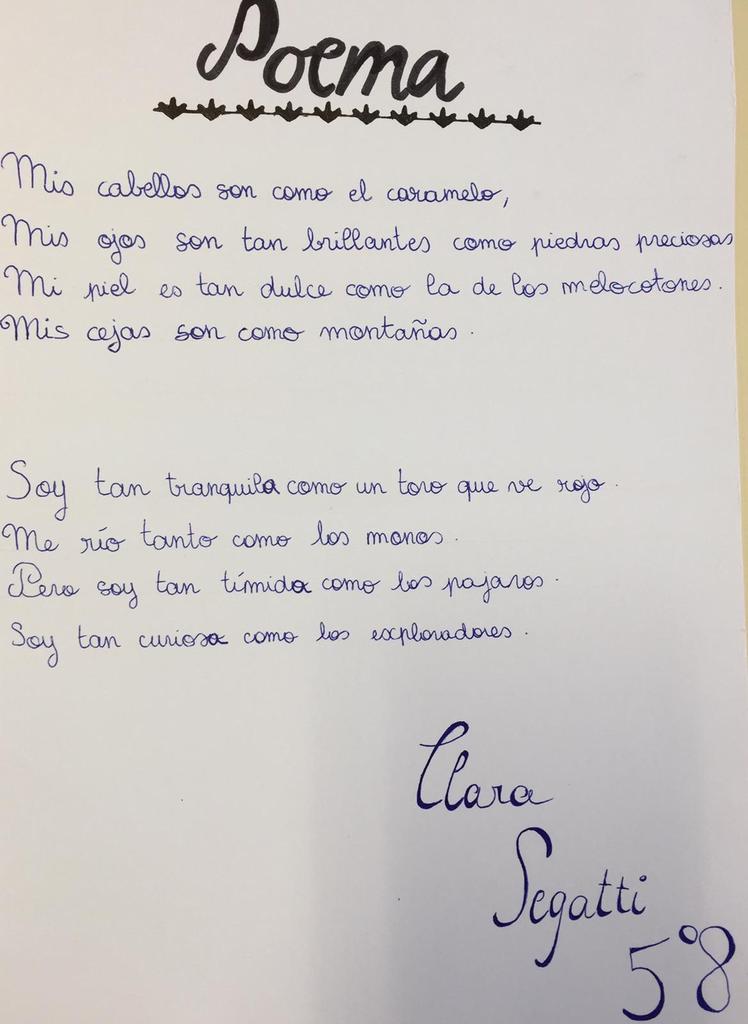 Poema
Mis cabellos son como el caramelo,
Mis ojos son tan brillantes como piedras preciosas
Mi piel es tan dulce como la de los melocotones.
Mis cejas son como montañas.
Soy tan tranquila como un toro que ve rojo.
Me río tanto como los monos.
Pero soy tan tímida como los pajaros.
Soy tan curiosa como los exploradores.
Clara
Segatti
5º8